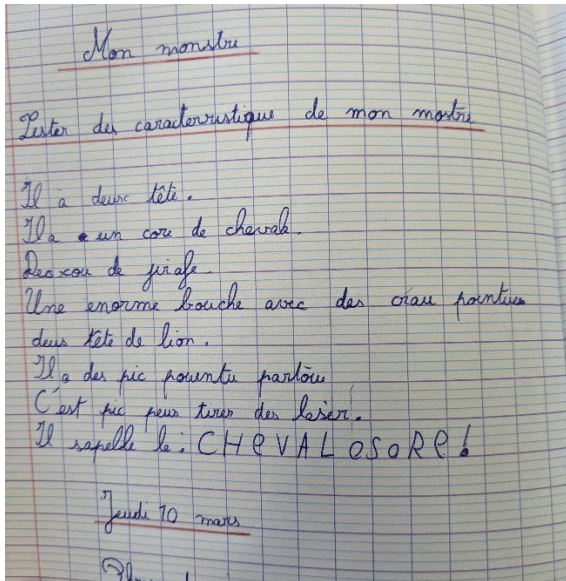 Mon monstre
Lister des caracterristique de mon mostre
Il a deux tête.
Il a un core de chevale.
Des cou de girafe.
Une enorme bouche avec des crau pointues
deus tête de lion.
Il a des pic pouintu partôu
C'est pic peus tirer des laser.
Il sapelle le : CHeVALOSORe !
Jeudi 10 mars